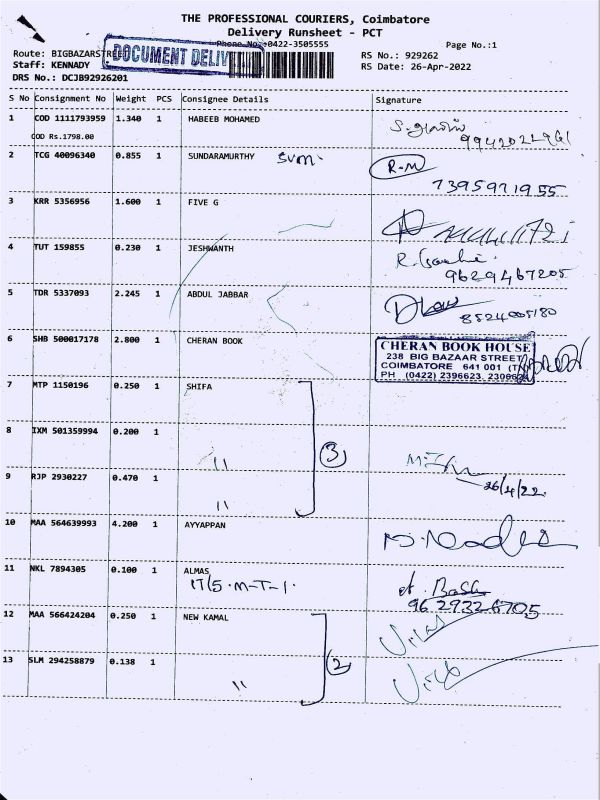 THE PROFESSIONAL COURIERS, Coimbatore
Delivery Runsheet - PCT
Phone No:+0422-3505555
Page No.:1
Route: BIGBAZARSTREE
DOCUMENT DELIV
RS No.: 929262
Staff: KENNADY
RS Date: 26-Apr-2022
DRS No.: DCJB92926201
S No Consignment No Weight PCS Consignee Details Signature
1 COD 1111793959 1.340 1 HABEEB MOHAMED
COD Rs.1798.00
2 TCG 40096340 0.855 1 SUNDARAMURTHY SVM. R-M
7395971955
3 KRR 5356956 1.600 1 FIVE G
4 TUT 159855 0.230 1 JESHWANTH
9629467205
5 TDR 5337093 2.245 1 ABDUL JABBAR
8524005180
6 SHB 500017178 2.800 1 CHERAN BOOK
CHERAN BOOK HOUSE
238 BIG BAZAAR STREET
COIMBATORE 641 001 (T
PH (0422) 2396623,
7 MTP 1150196 0.250 1 SHIFA
8 IXM 501359994 0.200 1 "
3
9 RJP 2930227 0.470 1 "
26/4/22
10 MAA 564639993 4.200 1 AYYAPPAN
11 NKL 7894305 0.100 1 ALMAS
17/5.M-T-1.
9629326705
12 MAA 566424204 0.250 1 NEW KAMAL
2
13 SLM 294258879 0.138 1 "